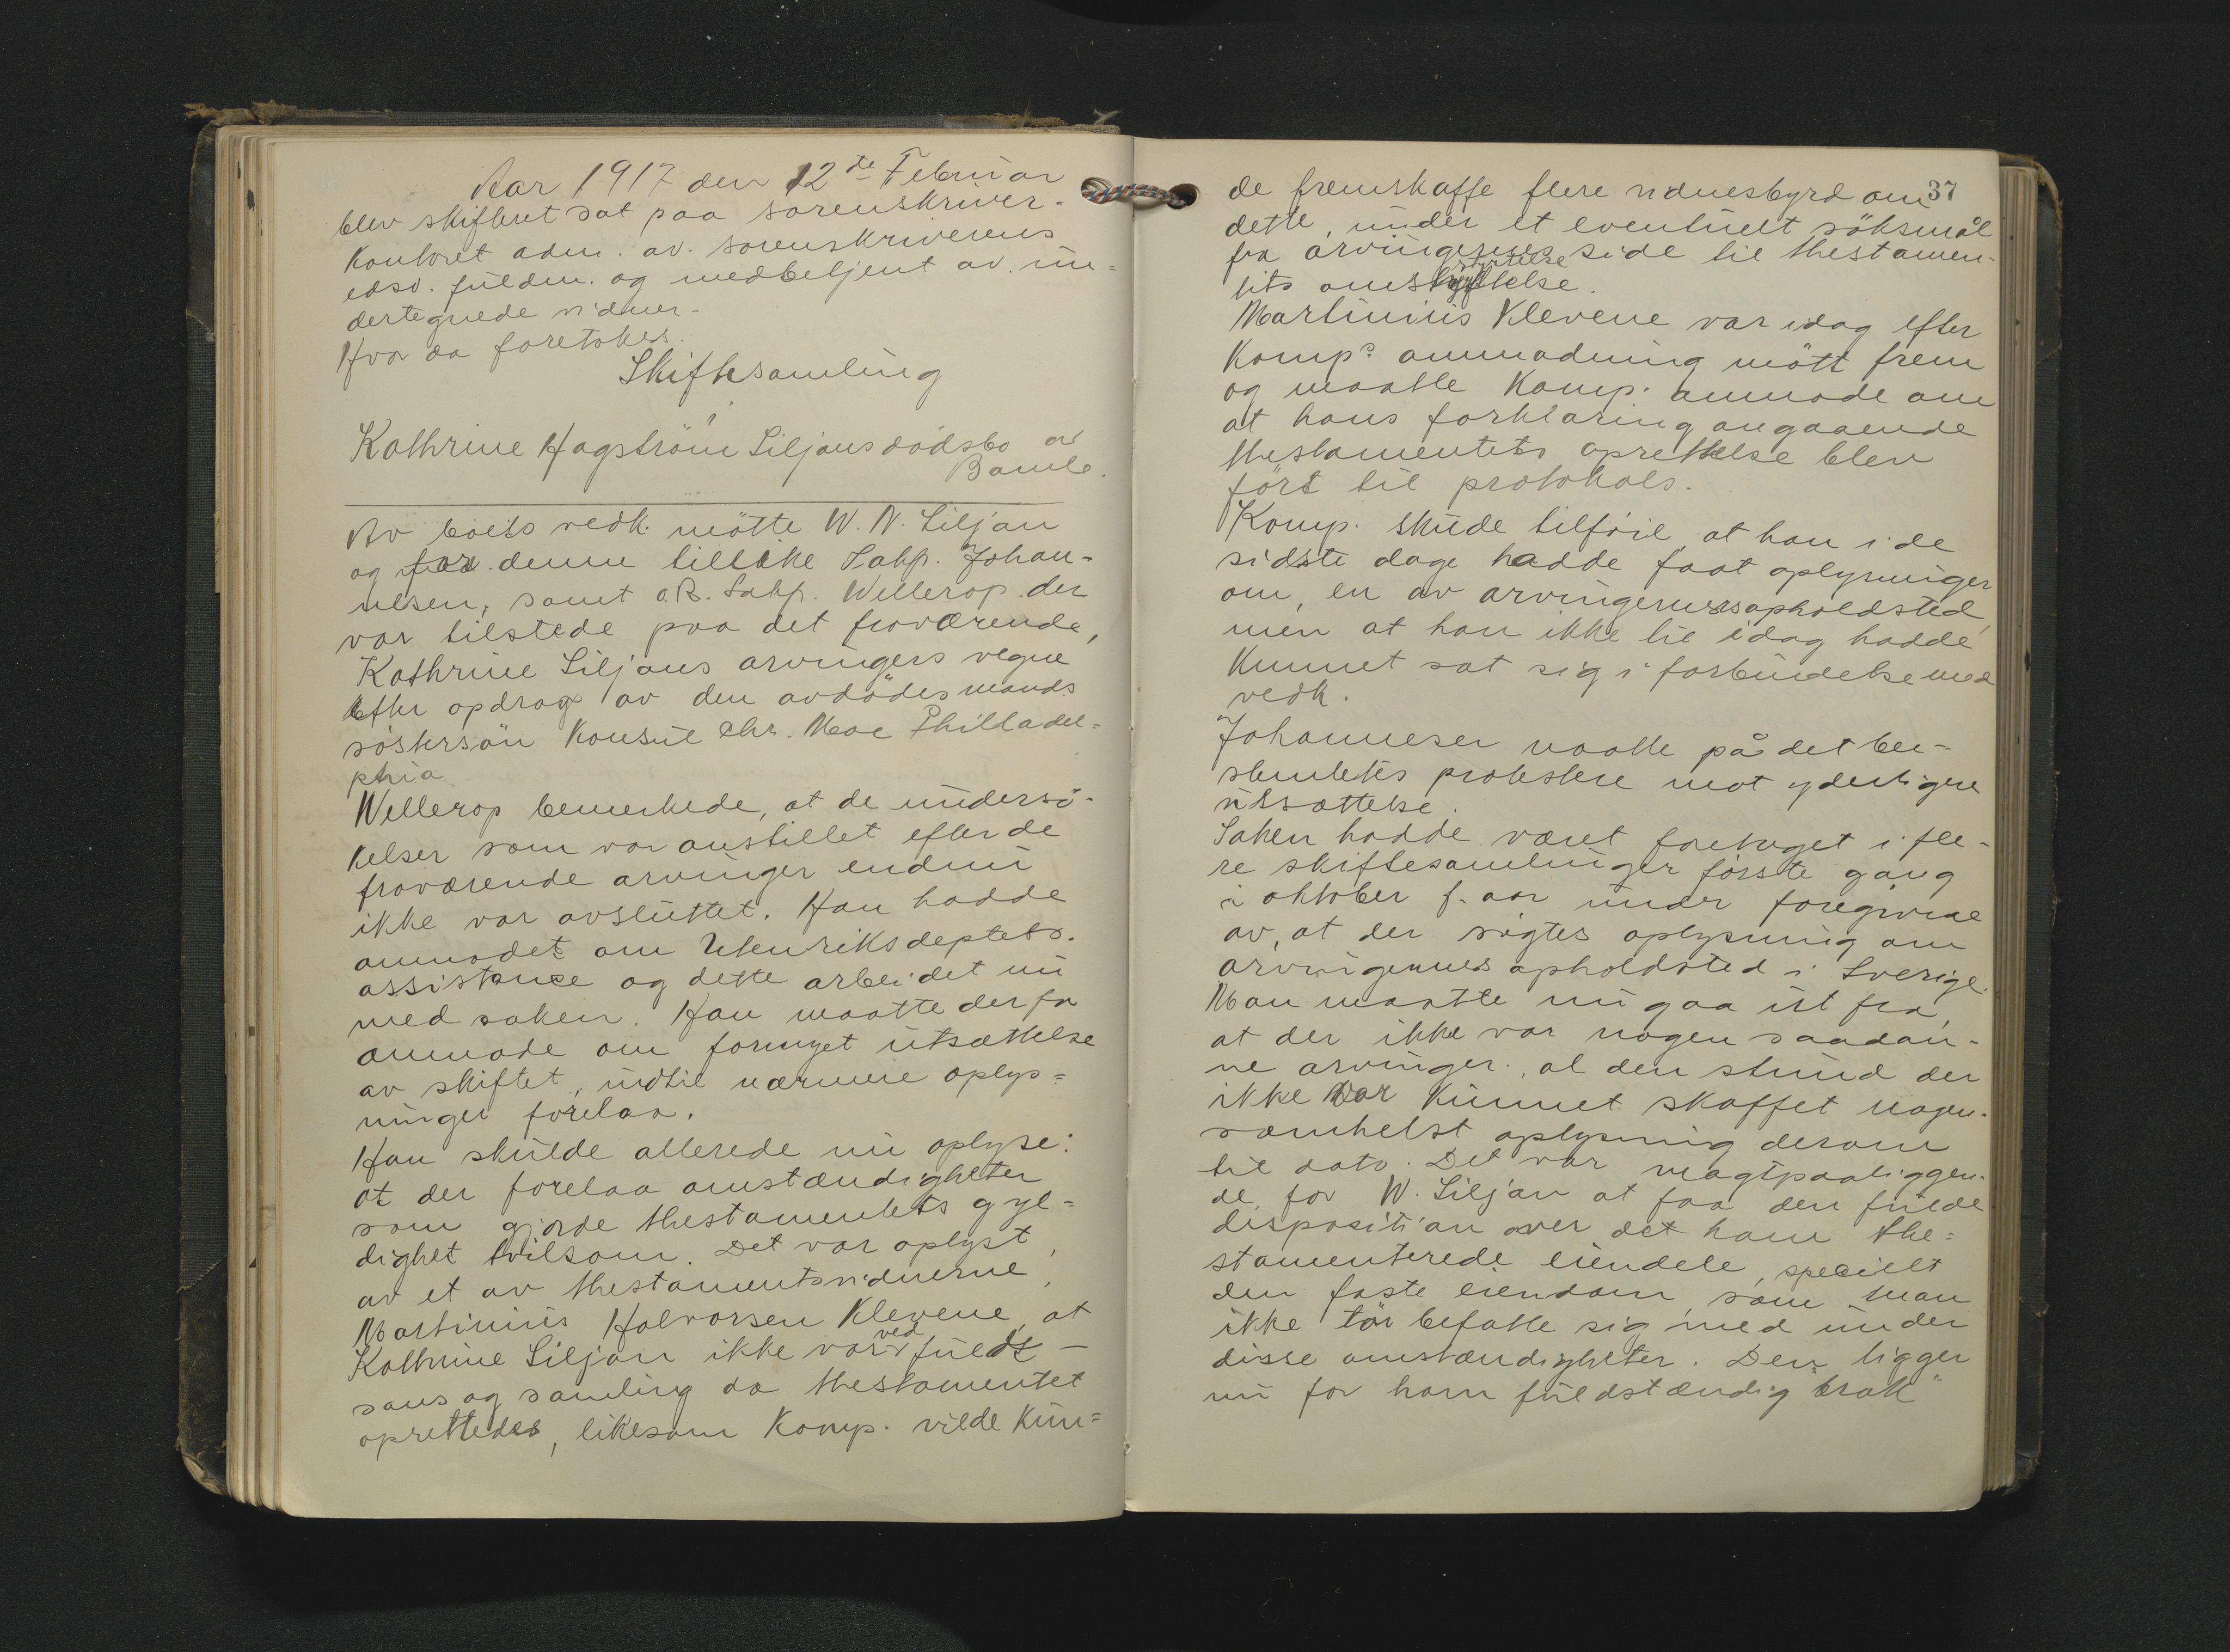 Aar 1917 den 12te Februar
blev skifteret sat paa sorenskriver-
kontoret adm. av. sorenskriverens
edsv. fuldm. og medbetjent av un-
dertegnede vidner.
Hvor da foretokes.
Skiftesamling
i
Kathrine Hagström Siljans dödsbo av
Bamle.
Av boets vedk. mötte W. N. Siljan
og for denne tillike Sakf. Johan-
nesen, samt o.R. Sakf. Wellerop der
var tilstede paa det fraværende,
Kathrine Siljans arvingers vegne
efter opdrag av den avdödes mands
söstersön Konsul Chr. Moe Philladel-
phia
Wellerop bemerkede, at de undersö-
kelser som var anstillet efter de
fraværende arvinger endnu
ikke var avsluttet. Han hadde
anmodet om Utenriksdeptets.
assistance og dette arbeidet nu
med saken. Han maatte derfor
anmode om fornyet utsættelse
av skiftet, indtil nærmere oplys-
ninger forelaa.
Han skulde allerede nu oplyse:
at der forelaa omstændigheter
som gjorde thestamentets gyl-
dighet tvilsom. Det var oplyst,
av et av thestamentsvidnerne,
Martinius Halvorsen Klevene, at
Kathrine Siljan ikke var ved fuld -
sans og samling da thestamentet
oprettedes, likesom Komp. vilde kun-
37
de fremskaffe flere vidnesbyrd om
dette, under et eventuelt söksmål
fra arvingernes side til thestamen-
tets omstyrtelse.
Martinius Klevene var idag efter
Komps anmodning mött frem
og maatte Komp. anmode om
at hans forklaring angaaende
thestamentets oprettelse blev
fört til protokols.
Komp. skude tilföie, at han i de
sidste dage hadde faat oplysninger
om, en av arvingernes opholdsted,
men at han ikke til idag hadde
kunnet sat sig i forbindelse med
vedk.
Johannesen maatte på det be-
stemteste protestere mot yderligere
utsættelse.
Saken hadde været foretaget i fle-
re skiftesamlinger förste gang
i oktober f. aar under foregivende
av, at der sögtes oplysning om
arvingernes opholdsted i Sverige.
Man maatte nu gaa ut fra,
at der ikke var nogen saadan-
ne arvinger, al den stund der
ikke har kunnet skaffet nogen-
somhelst oplysning derom
til dato. Det var magtpaaliggen-
de for W. Siljan at faa den fulde
disposition over det ham the-
stamenterede eiendele, specielt
den faste eiendom, som man
ikke tör befatte sig med under
disse omstændigheter. Den ligger
nu for ham fuldstændig brak"